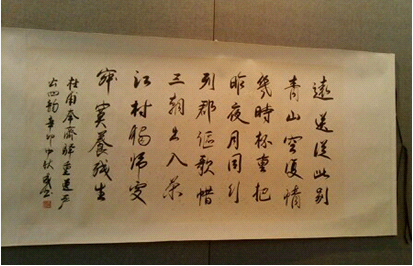 遠送從此別
青山空復情
幾時杯重把
昨夜月同行
列郡謳歌惜
三朝出入荣
江村獨歸處
寂寞養残生
杜甫奉濟驛重送严
公四韵辛卯中秋